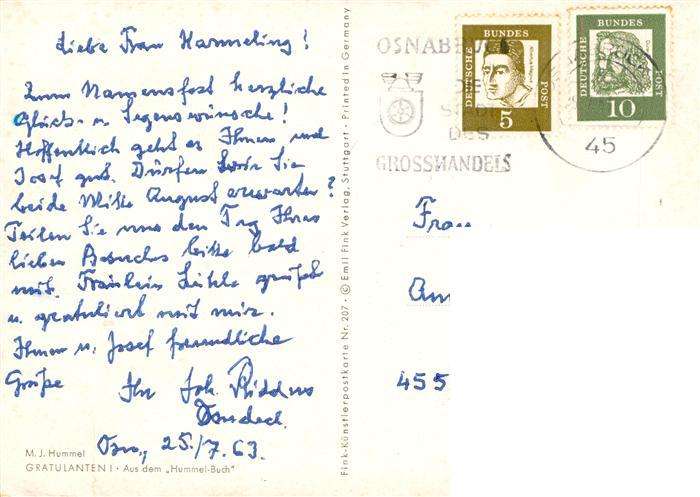 Liebe Frau Harmeling!
Zum Namensfest herzliche
Glück- u. Segenswünsche!
Hoffentlich geht es Ihnen und
Josef gut. Dürfen wir Sie
beide Mitte August erwarten?
Teilen Sie uns den Tag Ihres
lieben Besuches bitte bald
mit. Fräulein grüßt
u. gratuliert mit mir.
Ihnen u. Josef freundliche
Grüße Ihr Joh.
25./7.63.
M. J. Hummel
GRATULANTEN I · Aus dem „Hummel-Buch"
Fink-Künstlerpostkarte Nr. 207 · © Emil Fink Verlag, Stuttgart · Printed in Germany
DEUTSCHE BUNDES POST
5
DEUTSCHE BUNDES POST
10
GROSSHANDELS
45
Frau
455